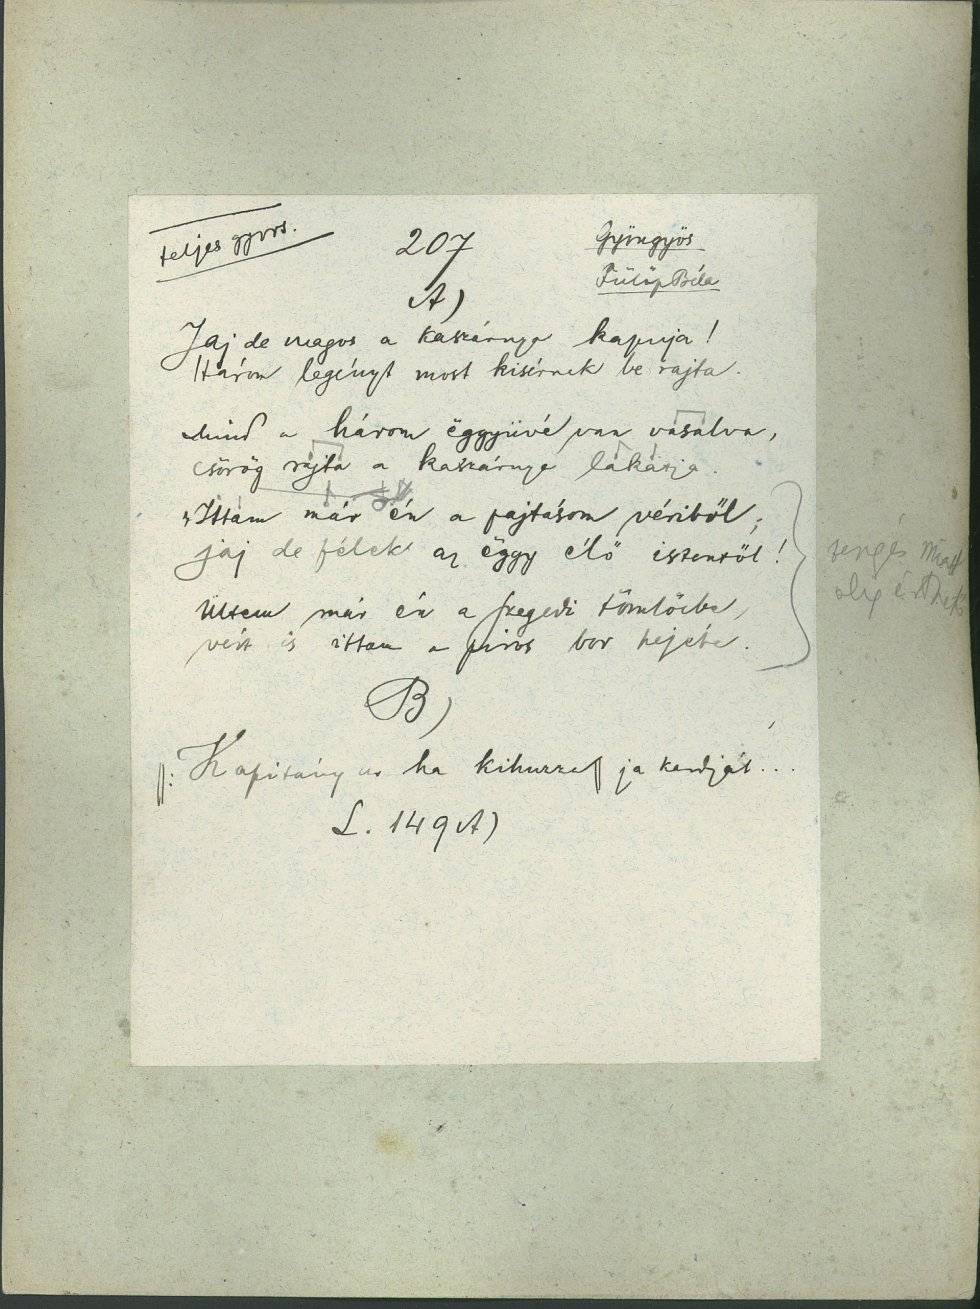 teljes gyors.
207
Gyöngyös
Fülöp Béla
A)
Jaj de magos a kaszárnya kapuja!
Három legényt most kisérnek be rajta.
Mind a három ëggyüvé van vasalva,
csörög rajta a kaszárnya lakatja.
"Ittam már én a pajtásom véribül,
jaj de félek az ëggy élő istentől!
Ültem már én a szegedi tömlöcbe,
vért is ittam a piros bor hejébe.
B)
||: Kapitány ur ha kihuzza || ja kardját...
L. 149 A)
rengés miatt